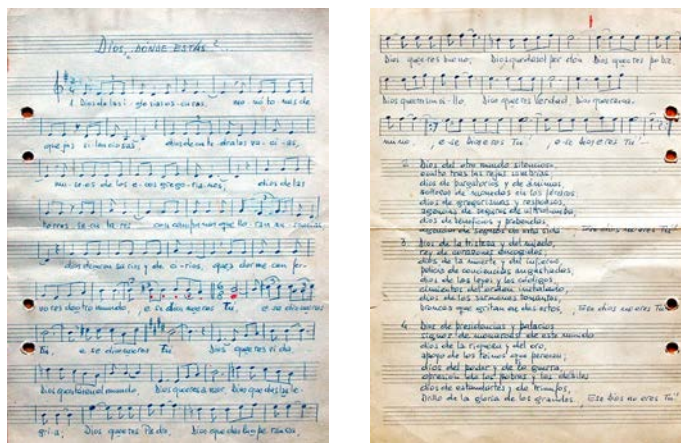 Dios, ¿DÓNDE ESTÁS?
1. Dios de las i-glesias os-curas, mo-no-to-nas de
quejas silenciosas, dios de catedrales va-cí-as,
mu-se-os de los e-cos grego-ria-nos, dios de las
torres se-cu-la-res con campanas que llo-ran
dios de rosarios y de ci-rios, que
otro mundo, e-se dios no eres Tú, e-se dios no eres
Tú, e-se dios no eres Tú. Dios que eres vida
Dios que amas al mundo, Dios que eres amor, Dios que das la ale-
grí-a, Dios que eres Pa-dre, Dios que das esperanza,
Dios que eres bueno, Dios que das el perdón Dios que eres pobre
Dios que eres sencillo, Dios que eres Verdad, Dios que
mundo, e-se Dios eres Tú, e-se Dios eres Tú
2. Dios del otro mundo silencioso,
oculto tras las rejas sombrías,
dios de purgatorios y de ánimas,
de monedas en los féretros,
dios de gregorianos y responsos,
agencias de seguros de ultratumba,
dios de beneficios y prebendas,
de esta vida. Ese dios no eres Tú
3. Dios de la tristeza y del miedo,
rey de corazones encogidos,
dios de la muerte y del infierno,
policía de conciencias angustiadas,
dios de las leyes y los códigos,
cimientos del orden instalado,
dios de los sermones tonantes,
broncas que gritan Ese dios no eres Tú
4. Dios de presidencias y palacios
signos de monarcas de este mundo
dios de la riqueza y del oro,
apoyo de los reinos que perecen;
dios del poder y de la guerra,
opresión de los pobres y los débiles
dios de estandartes y de triunfos,
brillo de la gloria de los grandes, Ese Dios no eres Tú